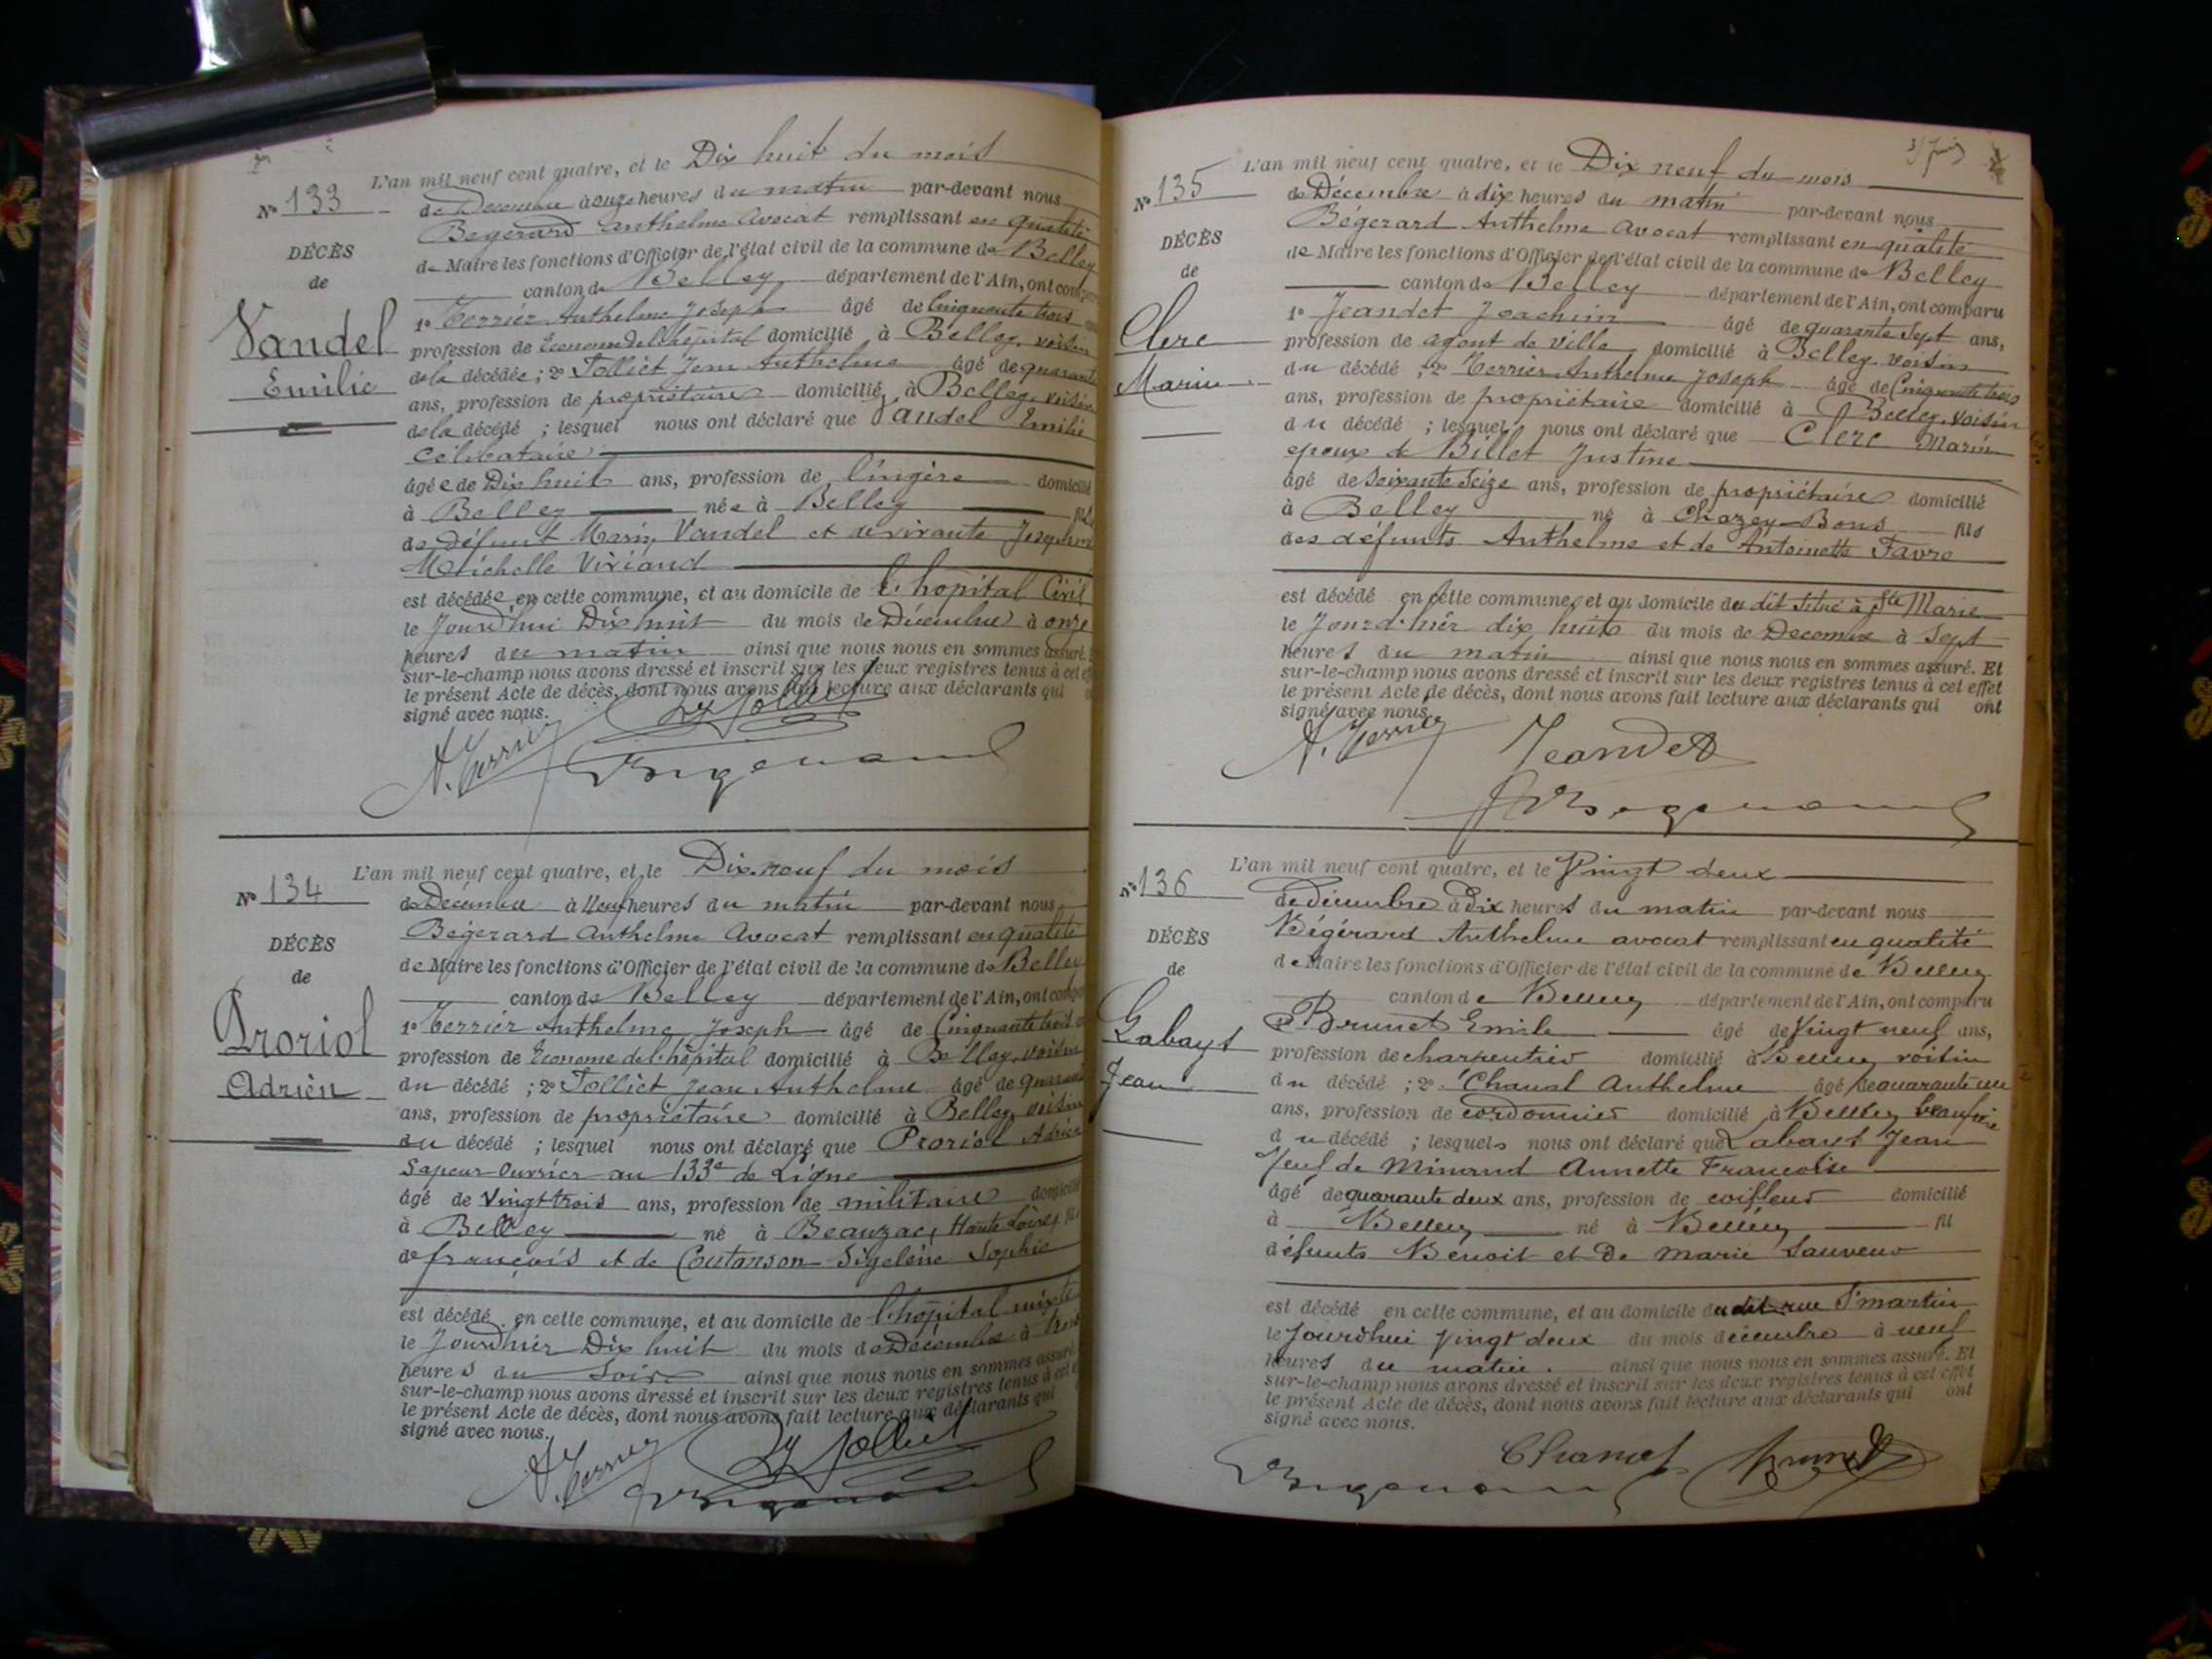 L'an mil neuf cent quatre, et le Dix huit du mois
N° 133
de Decembre à onze heures du matin par-devant nous
Bégerard Anthelme Avocat remplissant en qualité
DÉCÈS
de Maire les fonctions d'Officier de l'état civil de la commune de Belley
de
canton de Belley département de l'Ain, ont comparu
Vandel
Emilie
1° Terrier Anthelme Joseph âgé de Cinquante trois
profession de Econome de l'hôpital domicilié à Belley, voisin
de la décédée ; 2° Tolliet Jean Anthelme âgé de quarante
ans, profession de propriétaire domicilié à Belley, voisin
de la décédé ; lesquel nous ont déclaré que Vandel Emilie
Célibataire
âgée de Dix huit ans, profession de lingère domicilié
à Belley née à Belley
de défunt Marin Vandel et
Michelle Viriand
est décédée en cette commune, et au domicile de l'hopital Civil
le Jourd'hui Dix huit du mois de Décembre à onze
heures du matin ainsi que nous nous en sommes assuré.
sur-le-champ nous avons dressé et inscrit sur les deux registres tenus à cet
le présent Acte de décès, dont nous avons fait lecture aux déclarants qui
signé avec nous.
A. Terrier
Tolliet
Bégerard
L'an mil neuf cent quatre, et le Dix-neuf du mois
N° 134
de Décembre à Neuf heures du matin par-devant nous
Bégerard Anthelme Avocat remplissant en qualité
DÉCÈS
de Maire les fonctions d'Officier de l'état civil de la commune de Belley
de
canton de Belley département de l'Ain, ont comparu
Proriol
Adrien
1° Terrier Anthelme Joseph âgé de Cinquante trois
profession de Econome de l'hôpital domicilié à Belley, voisin
du décédé ; 2° Tolliet Jean Anthelme âgé de quarante
ans, profession de propriétaire domicilié à Belley voisin
du décédé ; lesquel nous ont déclaré que Proriol Adrien
Sapeur-Ouvrier au 133e de Ligne
âgé de Vingt trois ans, profession de militaire domicilié
à Belley né à Beauzac, Haute Loire, fils
de françois et de Coutanson Sigolène Sophie
est décédé en cette commune, et au domicile de l'hopital mixte
le Jourd'hier Dix huit du mois de Décembre à
heures du Soir ainsi que nous nous en sommes assuré.
sur-le-champ nous avons dressé et inscrit sur les deux registres tenus à cet
le présent Acte de décès, dont nous avons fait lecture aux déclarants qui
signé avec nous.
A. Terrier
Tolliet
Bégerard
L'an mil neuf cent quatre, et le Dix neuf du mois
N° 135
de Décembre à dix heures du matin par-devant nous
Bégerard Anthelme Avocat remplissant en qualité
DÉCÈS
de Maire les fonctions d'Officier de l'état civil de la commune de Belley
de
canton de Belley département de l'Ain, ont comparu
Clerc
Marin
1° Jeandet Joachim âgé de quarante Sept ans,
profession de agent de ville domicilié à Belley, voisin
du décédé ; 2° Terrier Anthelme Joseph âgé de Cinquante trois
ans, profession de propriétaire domicilié à Belley, voisin
du décédé ; lesquel nous ont déclaré que Clerc Marin
epoux de Billet Justine
âgé de Soixante Seize ans, profession de propriétaire domicilié
à Belley né à Chazey-Bons fils
des défunts Anthelme et de Antoinette Favre
est décédé en cette commune, et au domicile du dit Situé à Ste Marie
le Jourd'hier dix huit du mois de Decembre à Sept
heures du matin ainsi que nous nous en sommes assuré. Et
sur-le-champ nous avons dressé et inscrit sur les deux registres tenus à cet effet
le présent Acte de décès, dont nous avons fait lecture aux déclarants qui ont
signé avec nous.
A. Terrier
Jeandet
Bégerard
L'an mil neuf cent quatre, et le Vingt deux
N° 136
de décembre à Dix heures du matin par-devant nous
Bégérard Anthelme avocat remplissant en qualité
DÉCÈS
de Maire les fonctions d'Officier de l'état civil de la commune de Belley
de
canton de Belley département de l'Ain, ont comparu
Labayt
Jean
1° Brunet Emile âgé de Vingt neuf ans,
profession de charpentier domicilié à Belley voisin
du décédé ; 2° Chanal Anthelme âgé de quarante un
ans, profession de cordonnier domicilié à Belley beaufrère
du décédé ; lesquels nous ont déclaré que Labayt Jean
Veuf de Minand Annette Françoise
âgé de quarante deux ans, profession de coiffeur domicilié
à Belley né à Belley fil
défunts Benoit et de Marie Sauveur
est décédé en cette commune, et au domicile du dit rue St martin
le Jourd'hui Vingt deux du mois décembre à neuf
heures du matin. ainsi que nous nous en sommes assuré. Et
sur-le-champ nous avons dressé et inscrit sur les deux registres tenus à cet effet
le présent Acte de décès, dont nous avons fait lecture aux déclarants qui ont
signé avec nous.
Chanal
Brunet
Bégerard